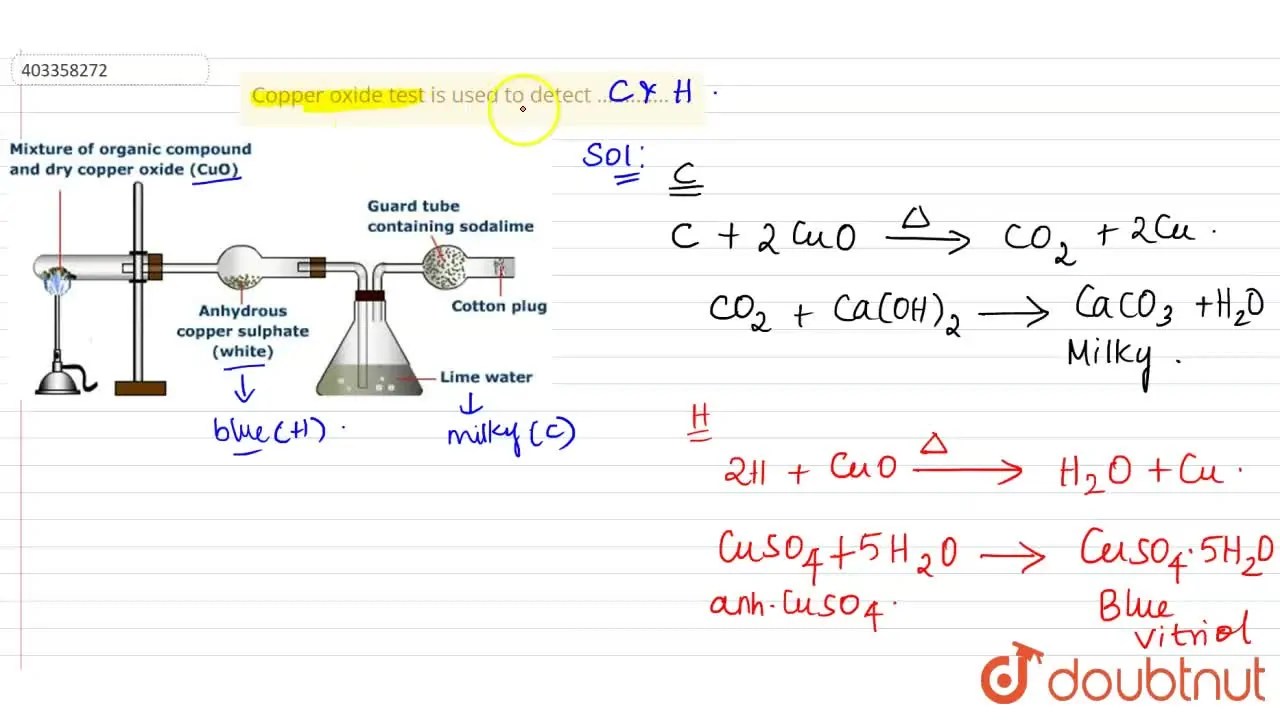 403358272
Copper oxide test is used to detect ............. C & H .
Mixture of organic compound
and dry copper oxide (CuO)
Guard tube
containing sodalime
Cotton plug
Anhydrous
copper sulphate
(white)
↓
blue (H) .
Lime water
↓
milky (C)
Sol:
C
C + 2 CuO —Δ→ CO₂ + 2Cu .
CO₂ + Ca(OH)₂ ⟶ CaCO₃ + H₂O
Milky .
H
2H + CuO —Δ→ H₂O + Cu .
CuSO₄ + 5H₂O ⟶ CuSO₄·5H₂O
anh. CuSO₄ .
Blue
vitriol
doubtnut